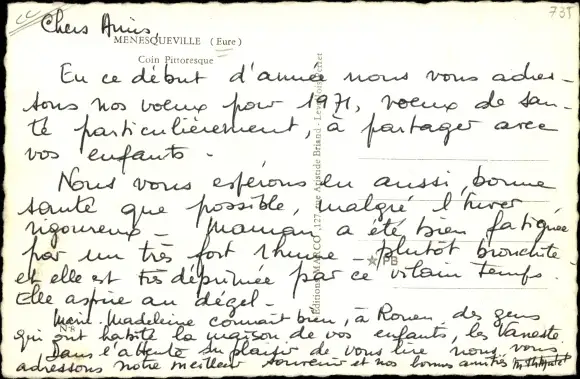 735
Chers Amis,
MENESQUEVILLE (Eure)
Coin Pittoresque
En ce début d'année nous vous adres-
sons nos voeux pour 1971, voeux de san-
té particulièrement, à partager avec
vos enfants.
Nous vous espérons en aussi bonne
santé que possible, malgré l'hiver
rigoureux - Maman a été bien fatiguée
par un très fort rhume - plutôt bronchite
et elle est très déprimée par ce vilain temps.
Elle aspire au dégel -
Marie-Madeleine connait bien, à Rouen des gens
qui ont habité la maison de vos enfants, les Vaneste
Dans l'attente du plaisir de vous lire nous vous
adressons notre meilleur souvenir et nos bonnes amitiés
Editions MARCO, 127, rue Aristide Briand - Levallois-Perret
PB